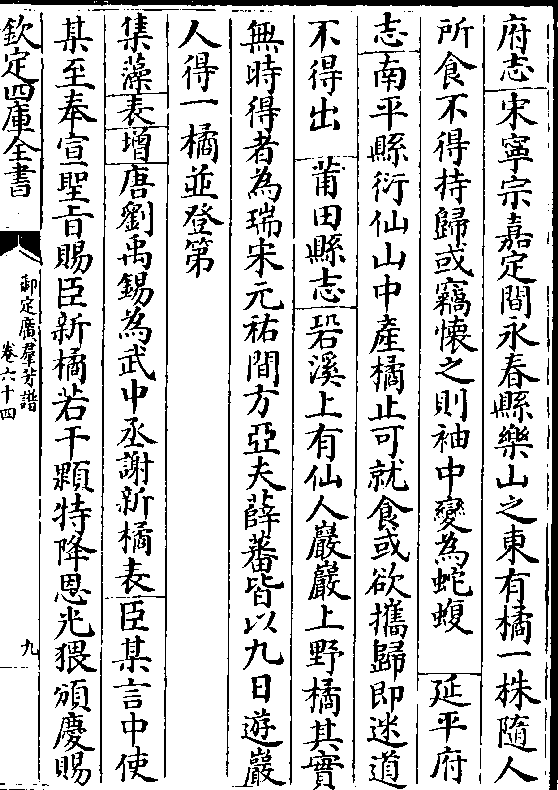 府志宋寧宗嘉定間永春縣樂山之東有橘一株隨人
所食不得持歸或竊懷之則袖中變為蛇蝮　延平府
志南平縣衍仙山中產橘止可就食或欲攜歸即迷道
不得出　莆田縣志䂬溪上有仙人巖巖上野橘其實
無時得者為瑞宋元祐間方亞夫薛蕃皆以九日遊巖
人得一橘並登第
集藻表增唐劉禹錫為武中丞謝新橘表臣某言中使
某至奉宣聖旨賜臣新橘若干顆特降恩光猥頒慶賜
欽定四庫全書
御定廣羣芳譜
卷六十四
九